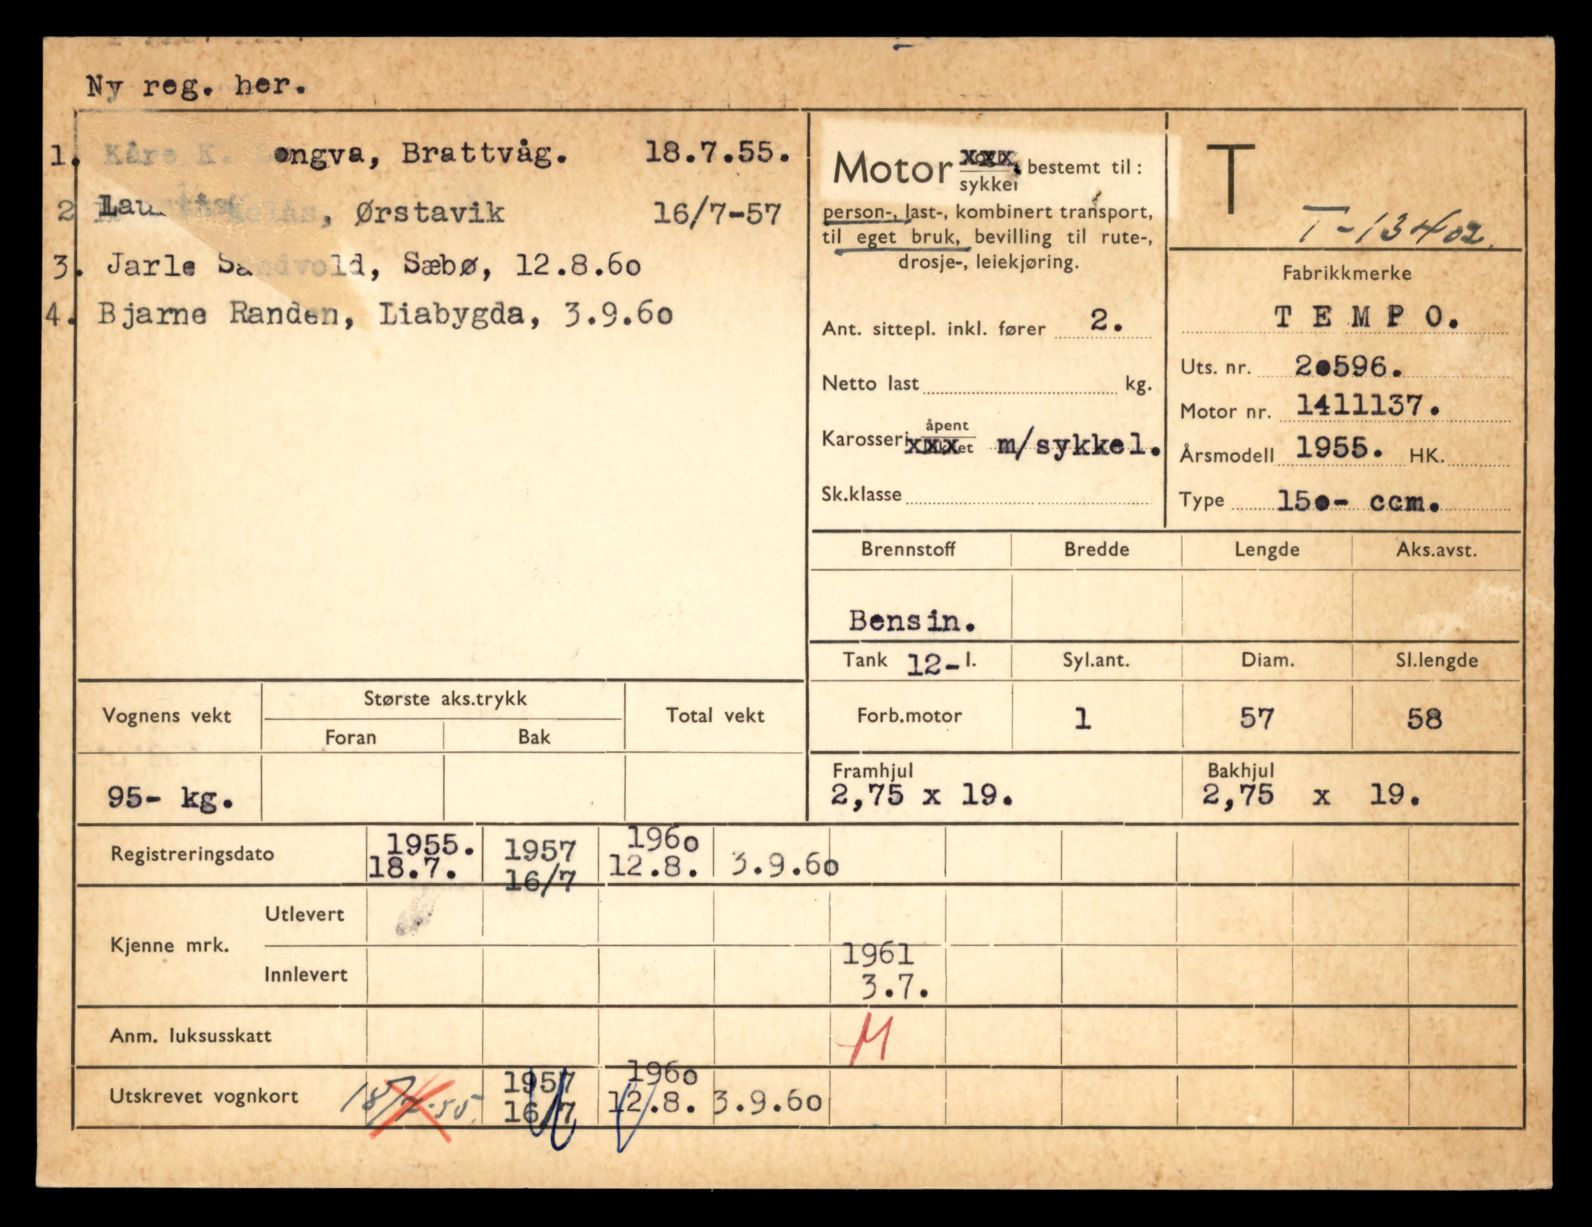 Ny reg. her.
1. Kåre K. Longva, Brattvåg. 18.7.55.
2 Ørstavik 16/7-57
3. Jarle Sandvold, Sæbø, 12.8.60
4. Bjarne Randen, Liabygda, 3.9.60
Motor xxx
sykkel
bestemt til:
person-, last-, kombinert transport,
til eget bruk, bevilling til rute-,
drosje-, leiekjøring.
Ant. sittepl. inkl. fører 2.
Netto last kg.
Karosseri åpent
xxx m/sykkel.
Sk.klasse
T
T-13402.
Fabrikkmerke
TEMPO.
Uts. nr. 20596.
Motor nr. 1411137.
Årsmodell 1955. HK.
Type 150- ccm.
Brennstoff Bredde Lengde Aks.avst.
Bensin.
Tank 12- l. Syl.ant. Diam. Sl.lengde
Forb.motor 1 57 58
Framhjul Bakhjul
2,75 x 19. 2,75 x 19.
Vognens vekt Største aks.trykk Total vekt
Foran Bak
95- kg.
Registreringsdato 1955. 18.7. 1957 16/7 1960 12.8. 3.9.60
Kjenne mrk. Utlevert
Innlevert 1961 3.7.
Anm. luksusskatt M
Utskrevet vognkort 18/7-55. 1957 16/7 1960 12.8. 3.9.60